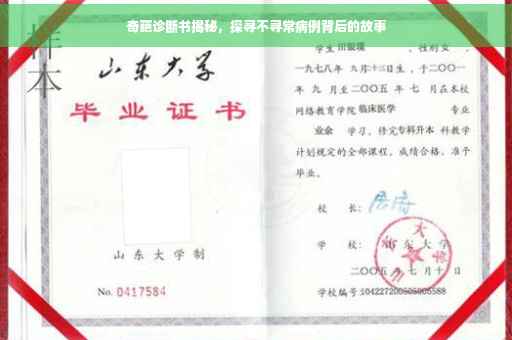 奇葩诊断书揭秘，探寻不寻常病例背后的故事
样本
山东大学
毕业证书
山东大学制
No. 0417584
学生 田银瑛 ，性别女，
一九七八年 九月十三日生，于二〇〇一
年 九 月至二〇〇五 年 七 月在本校
网络教育学院临床医学 专业
业余 学习，修完专科升本科教学
计划规定的全部课程，成绩合格，准予
毕业。
校 长：
学 校：山东大学
二〇〇五年 七 月 十 日
学校编号:104227200505005588